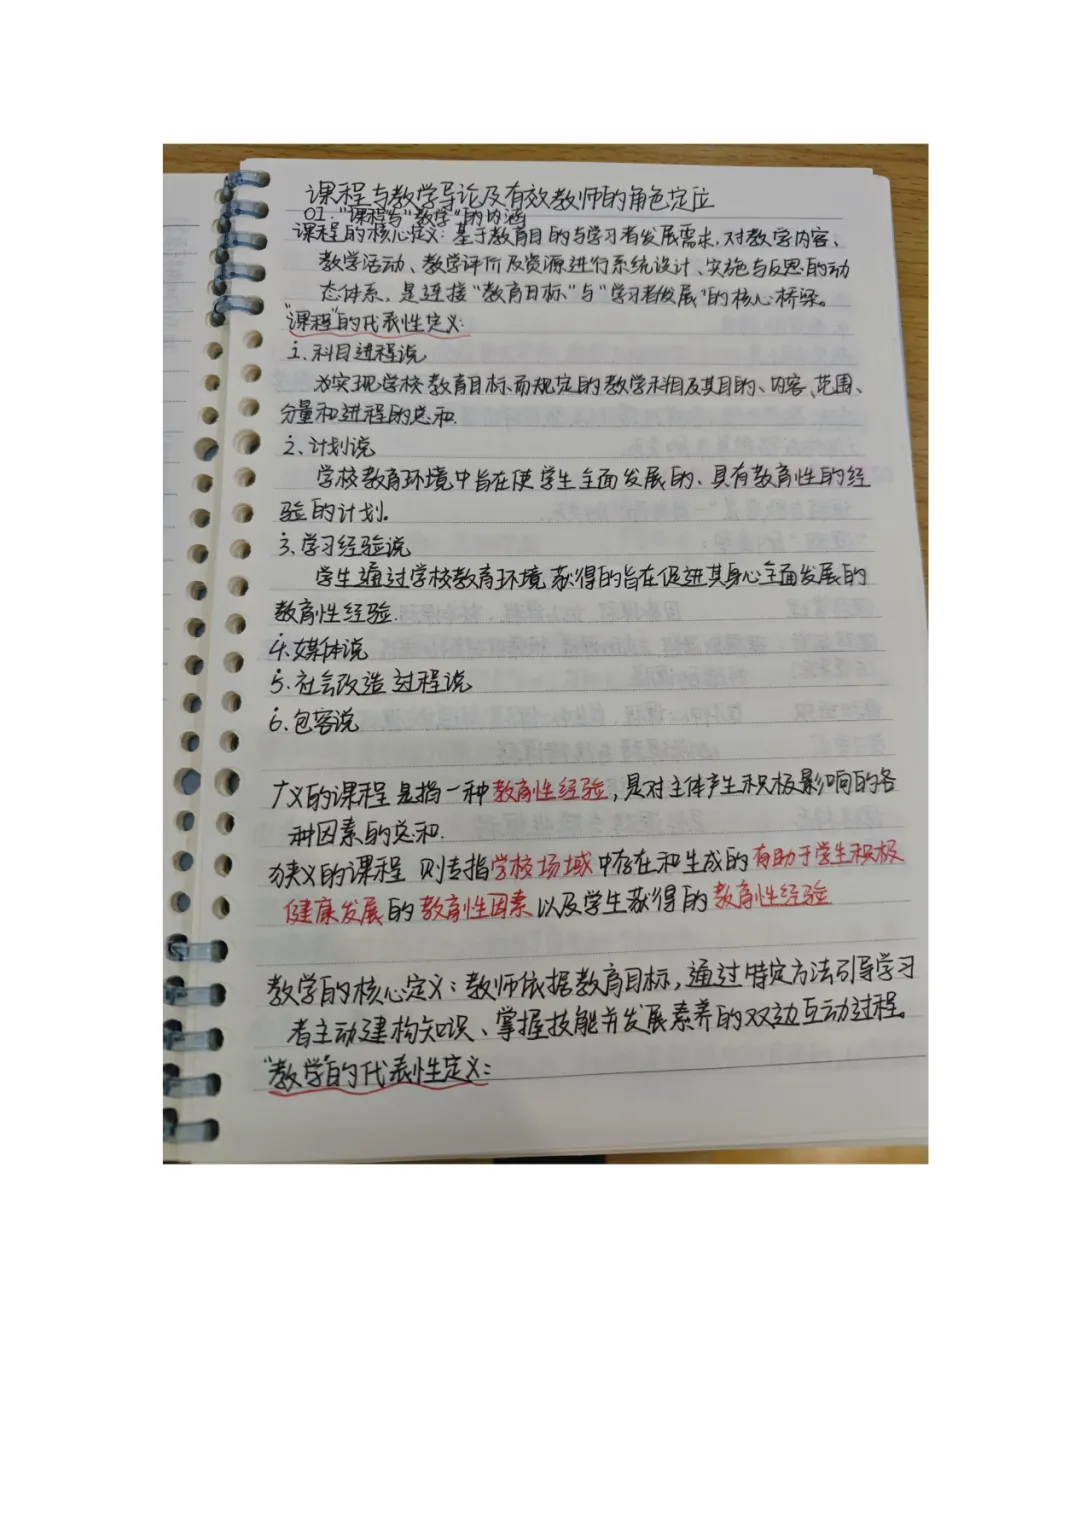 课程与教学导论及有效教师的角色定位
01."课程与"教学"的内涵
课程的核心定义:基于教育目的与学习者发展需求,对教学内容、
教学活动、教学评价及资源进行系统设计、实施与反思的动
态体系,是连接"教育目标"与"学习者发展"的核心桥梁。
"课程"的代表性定义:
1.科目进程说
为实现学校教育目标而规定的教学科目及其目的、内容、范围、
分量和进程的总和.
2.计划说
学校教育环境中旨在使学生全面发展的、具有教育性的经
验的计划.
3.学习经验说
学生通过学校教育环境获得的旨在促进其身心全面发展的
教育性经验.
4.媒体说
5.社会改造过程说
6.包容说
广义的课程是指一种教育性经验,是对主体产生积极影响的各
种因素的总和.
狭义的课程 则专指学校场域中存在和生成的有助于学生积极
健康发展的教育性因素以及学生获得的教育性经验
教学的核心定义:教师依据教育目标,通过特定方法引导学习
者主动建构知识、掌握技能并发展素养的双边互动过程。
"教学"的代表性定义: